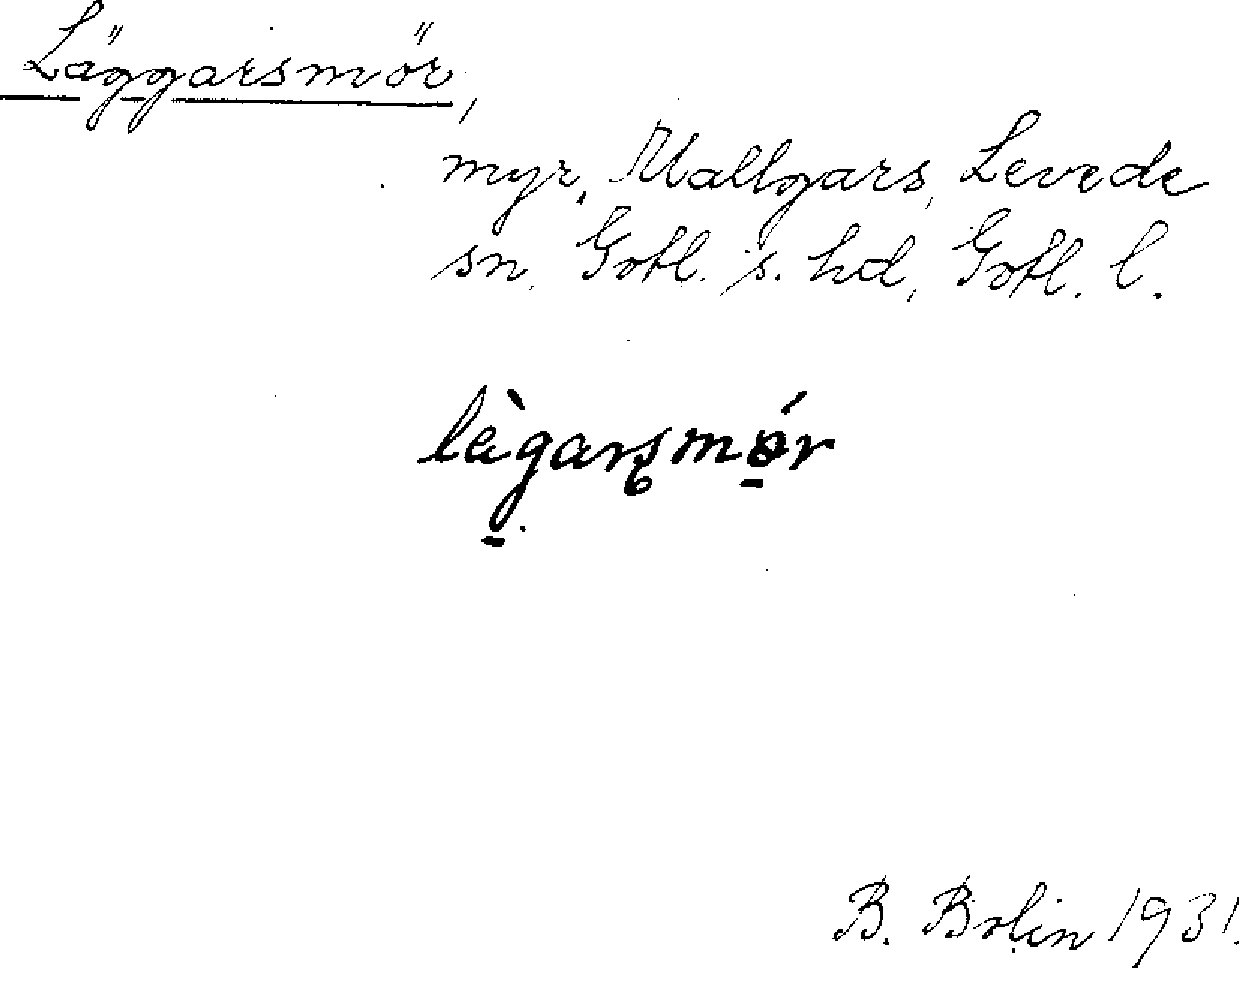 Läggarsmör,
myr, Mallgars, Levede
sn, Gotl. s. hd, Gotl. l.
B. Bolin 1931.